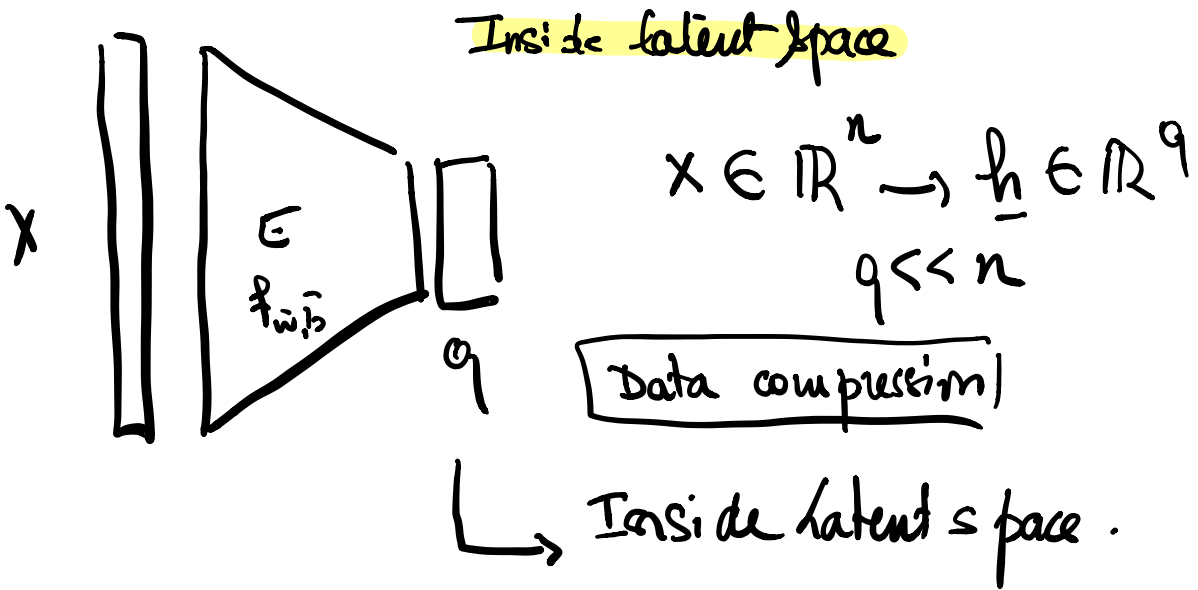 Inside latent space
x ∈ ℝⁿ → h ∈ ℝ^q
q << n
X
E
f_w̄,b̄
q
Data compression
Inside Latent space.